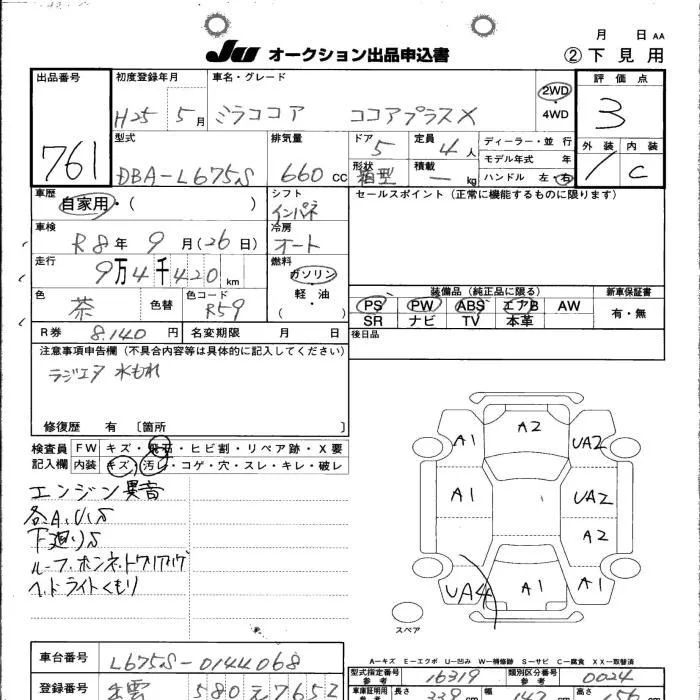 月 日 AA
JU オークション出品申込書 ② 下見用
出品番号 初度登録年月 車名・グレード 2WD 評価点
761 H25 5月 ミラココア ココアプラスX 4WD 3
型式 排気量 ドア 定員 ディーラー・並行 外装 内装
DBA-L675S 660cc 5 4人 モデル年式 年 1 C
形状 積載 ハンドル 左・右
箱型 ー kg
車歴 自家用・( ) シフト セールスポイント(正常に機能するものに限ります)
インパネ
車検 R8年 9月(26日) 冷房
オート
走行 9万4千420km 燃料
ガソリン
軽・油
( )
色 茶 色替 色コード R59
装備品(純正品に限る) 新車保証書
PS PW ABS エアB AW 有・無
SR ナビ TV 本革
R券 8.140円 名変期限 月 日 後日品
注意事項申告欄(不具合内容等は具体的に記入してください)
ラジエア 水もれ
修復歴 有 [箇所 ]
検査員 FW キズ・飛石・ヒビ割・リペア跡・X要
記入欄 内装 キズ・汚レ・コゲ・穴・スレ・キレ・破レ
エンジン異音
各A.U.S
下廻りS
ヘッドライトくもり
A1 A2 UA2
A1 UA2
A2
UA4 A1 A1
スペア
A-キズ E-エクボ U-凹み W-補修跡 S-サビ C-腐食 XX-交替済
車台番号 L675S-0144068
型式指定番号 参考 16319 類別区分番号 参考 0024
登録番号 出雲 580 え 7652
車庫証明用 参考 長さ 339 cm 幅 147 cm 高さ 156 cm